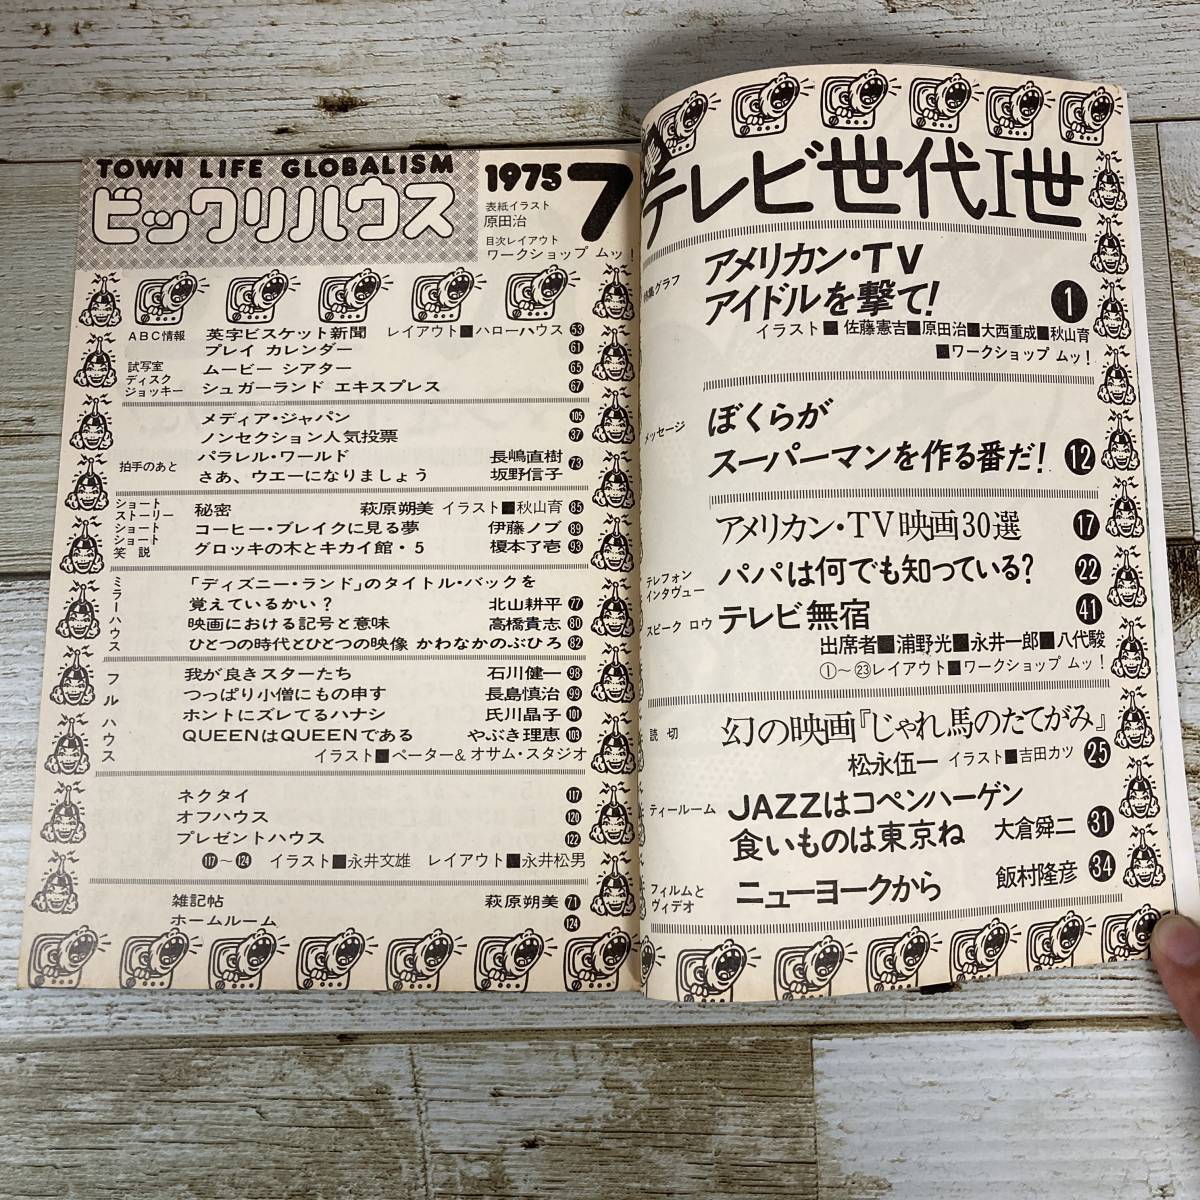 TOWN LIFE GLOBALISM
ビックリハウス
1975 7
表紙イラスト
原田治
目次レイアウト
ワークショップ ムッ!
ABC情報 英字ビスケット新聞 レイアウト■ハローハウス 53
プレイ カレンダー 61
試写室 ムービー シアター 65
ディスクジョッキー シュガーランド エキスプレス 67
メディア・ジャパン 105
ノンセクション人気投票 37
拍手のあと パラレル・ワールド 長嶋直樹 73
さあ、ウエーになりましょう 坂野信子
ショートストーリー 秘密 萩原朔美 イラスト■秋山育 85
ショートショート コーヒー・ブレイクに見る夢 伊藤ノブ 89
笑説 グロッキの木とキカイ館・5 榎本了壱 93
ミラーハウス
「ディズニー・ランド」のタイトル・バックを
覚えているかい? 北山耕平 77
映画における記号と意味 高橋貴志 80
ひとつの時代とひとつの映像 かわなかのぶひろ 82
フルハウス
我が良きスターたち 石川健一 98
つっぱり小僧にもの申す 長島慎治 99
ホントにズレてるハナシ 氏川晶子 101
QUEENはQUEENである やぶき理恵 103
イラスト■ペーター&オサム・スタジオ
ネクタイ 117
オフハウス 120
プレゼントハウス 122
117〜124 イラスト■永井文雄 レイアウト■永井松男
雑記帖 萩原朔美 71
ホームルーム 124
テレビ世代I世
集グラフ
アメリカン・TV
アイドルを撃て! 1
イラスト■佐藤憲吉■原田治■大西重成■秋山育
■ワークショップ ムッ!
メッセージ
ぼくらが
スーパーマンを作る番だ! 12
アメリカン・TV映画30選 17
テレフォンインタヴュー パパは何でも知っている? 22
スピーク ロウ テレビ無宿 41
出席者■浦野光■永井一郎■八代駿
①〜㉓レイアウト■ワークショップ ムッ!
読切 幻の映画『じゃれ馬のたてがみ』
松永伍一 イラスト■吉田カツ 25
ティールーム JAZZはコペンハーゲン
食いものは東京ね 大倉舜二 31
フィルムとヴィデオ ニューヨークから 飯村隆彦 34